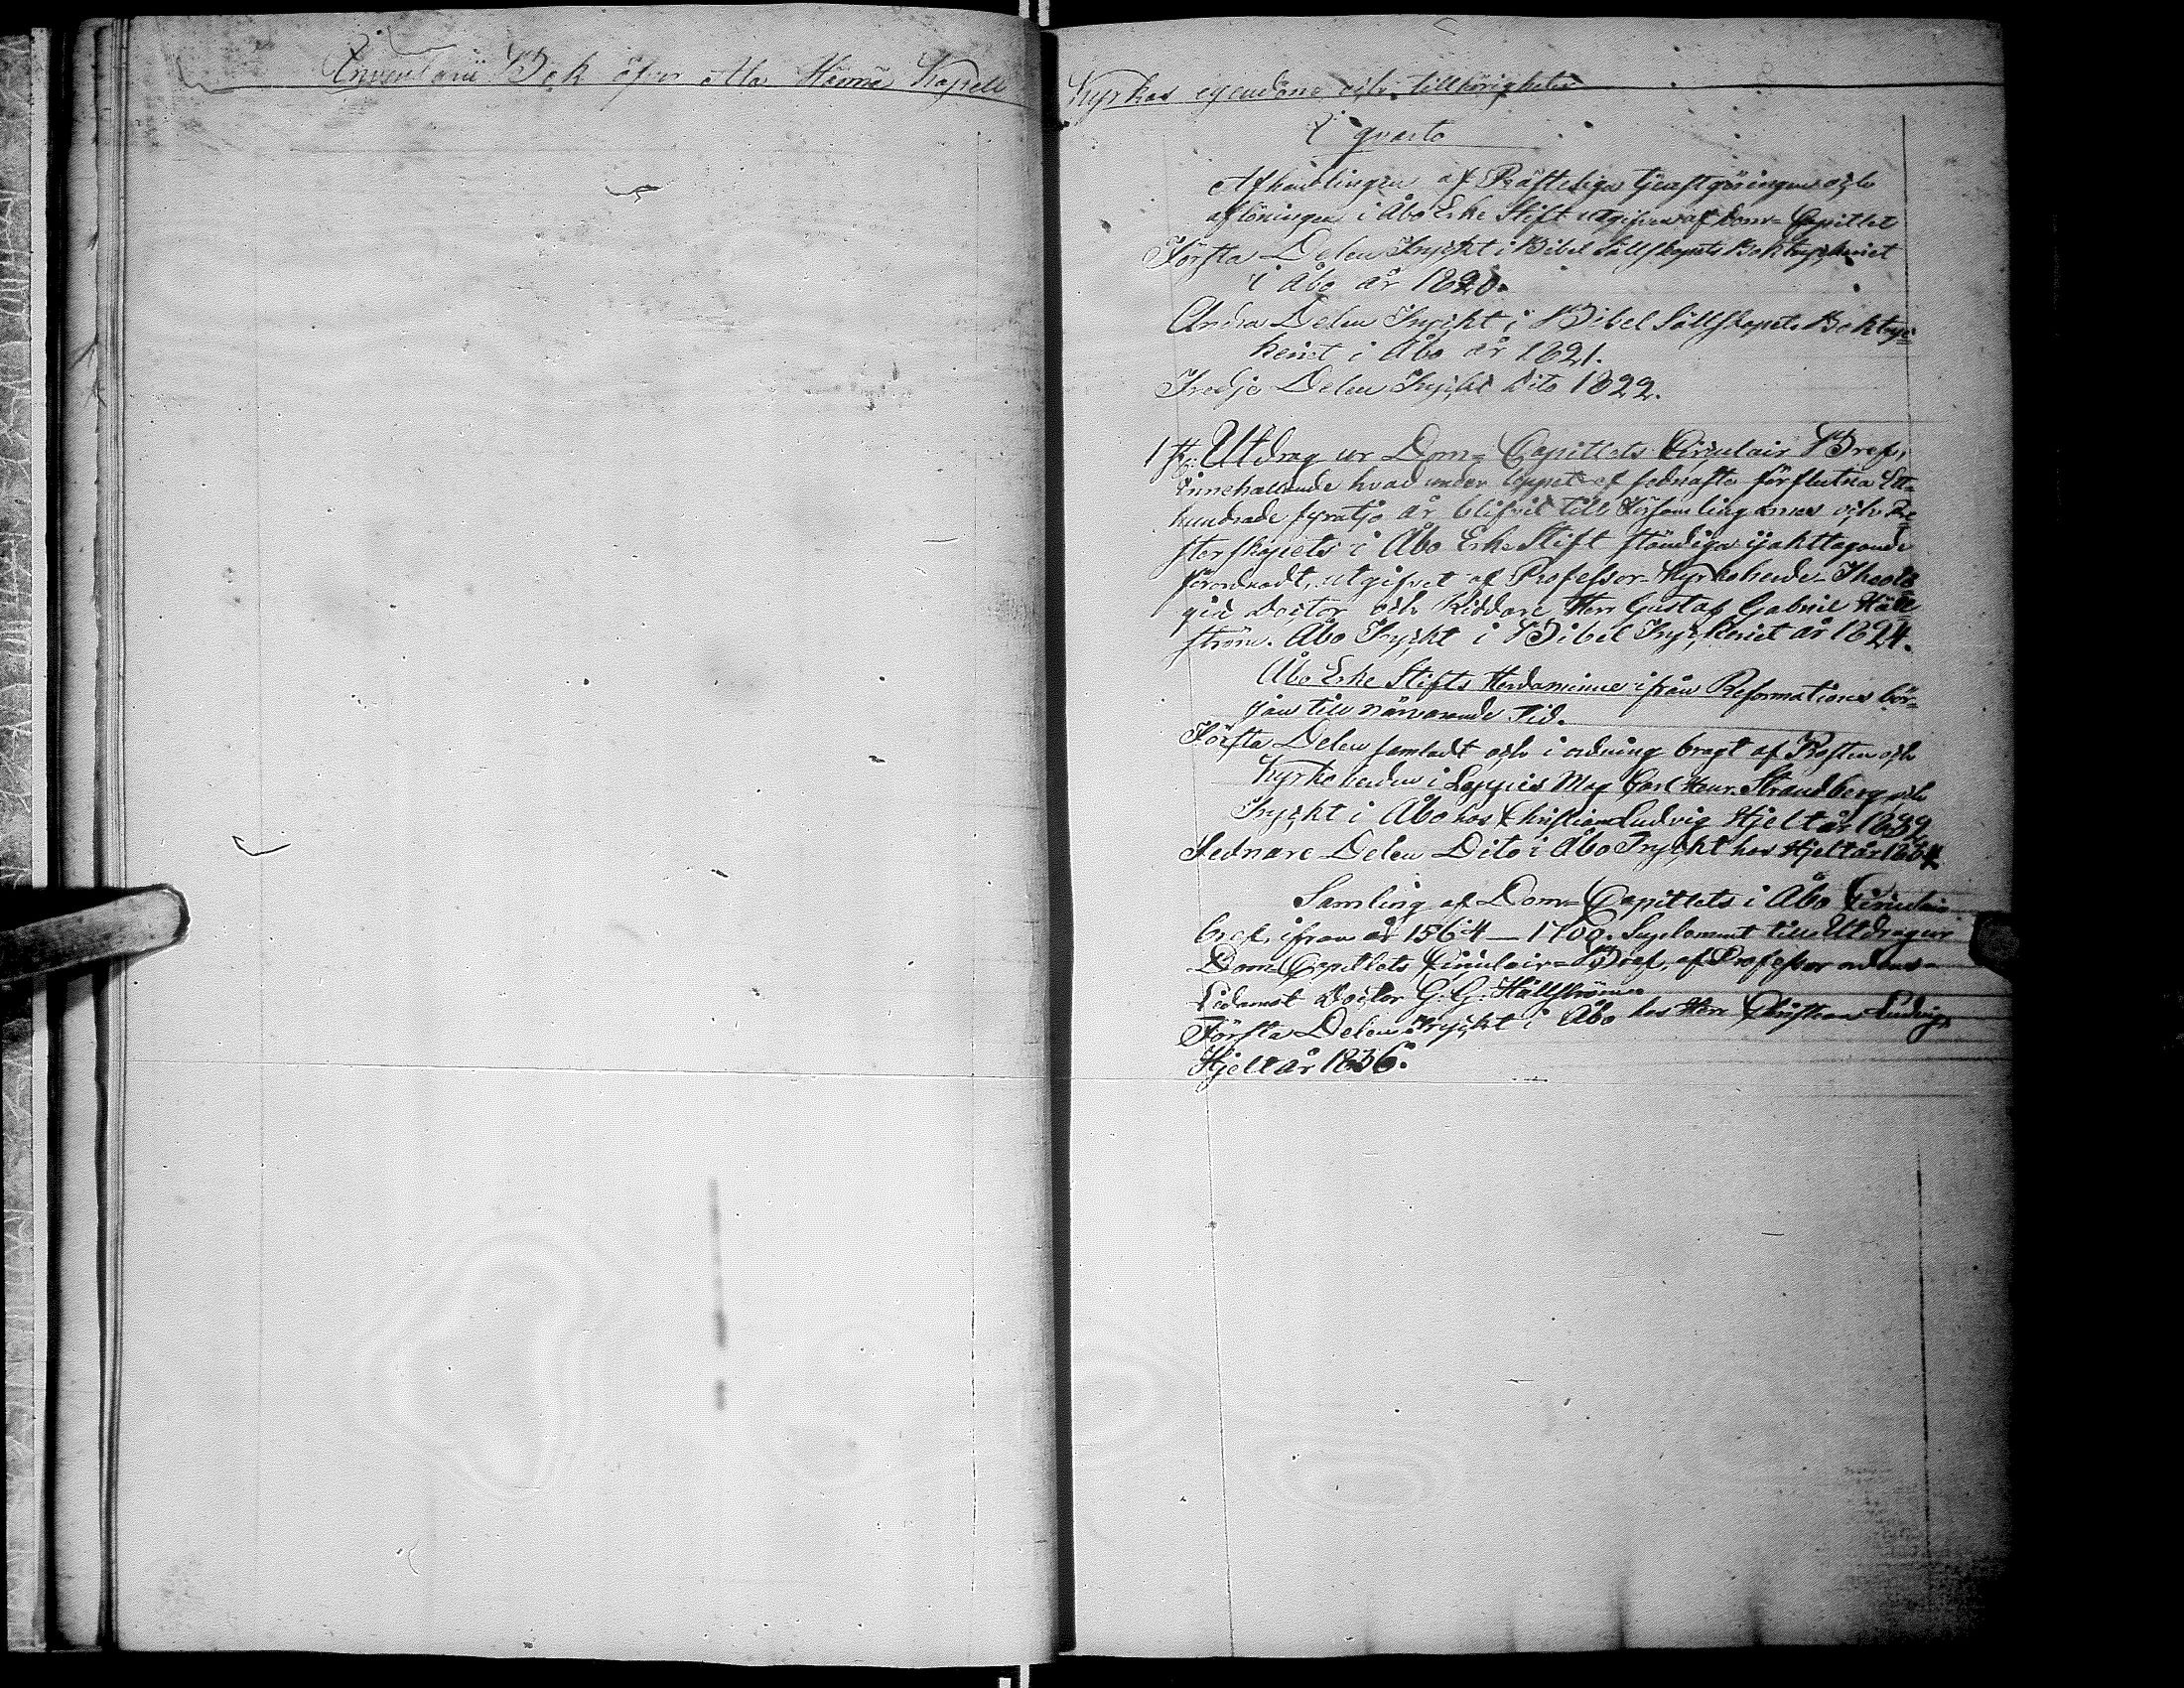 Inventarii Bok öfver Ala Härmä Kapell
Kyrkas egendom och tillhörigheter
I qvarto
Afhandlingen af Prästeliga tjenstgöringen och
aflöningen i Åbo Erke Stift utgifven af Dom= Capitlet
Första Delen Tryckt i Bibel Sällskapets Boktryckeriet
i Åbo år 1820.
Andra Delen Tryckt i Bibel Sällskapets Boktryc=
keriet i Åbo år 1821.
Tredje Delen Tryckt Dito 1822.
Utdrag ur Dom= Capitlets Circulair Bref,
Innehållande hvad under loppet af sednaste förflutna Ett=
hundrade fyratjo år blifvit till Församlingarnes och Pre=
sterskapets i Åbo Erke Stift ständiga ijakttagande
förordnadt, utgifvet af Professor- Kyrkoherde- Theolo=
giæ Doctor och Riddare Herr Gustaf Gabriel Häll=
ström. Åbo Tryckt i Bibel Tryckeriet år 1824.
Åbo Erke Stifts Herdaminne ifrån Reformations bör=
jan till närvarande Tid.
Första Delen samladt och i ordning bragt af Prosten och
Kyrkoherden i Loppis Mag Carl Henr. Strandberg, och
Tryckt i Åbo hos Christian Ludvig Hjelt år 1832
Sednare Delen Dito i Åbo Tryckt hos Hjelt år 1834.
Samling af Dom= Capitlets i Åbo Circulair
bref, ifrån år 1564 — 1700. Suplement till Utdrag ur
Dom= Capitlets Circulair= Bref, af Professor
Ledamot Doctor G: G: Hällström
Första Delen Tryckt i Åbo hos Herr Christian Ludvig
Hjelt år 1836.